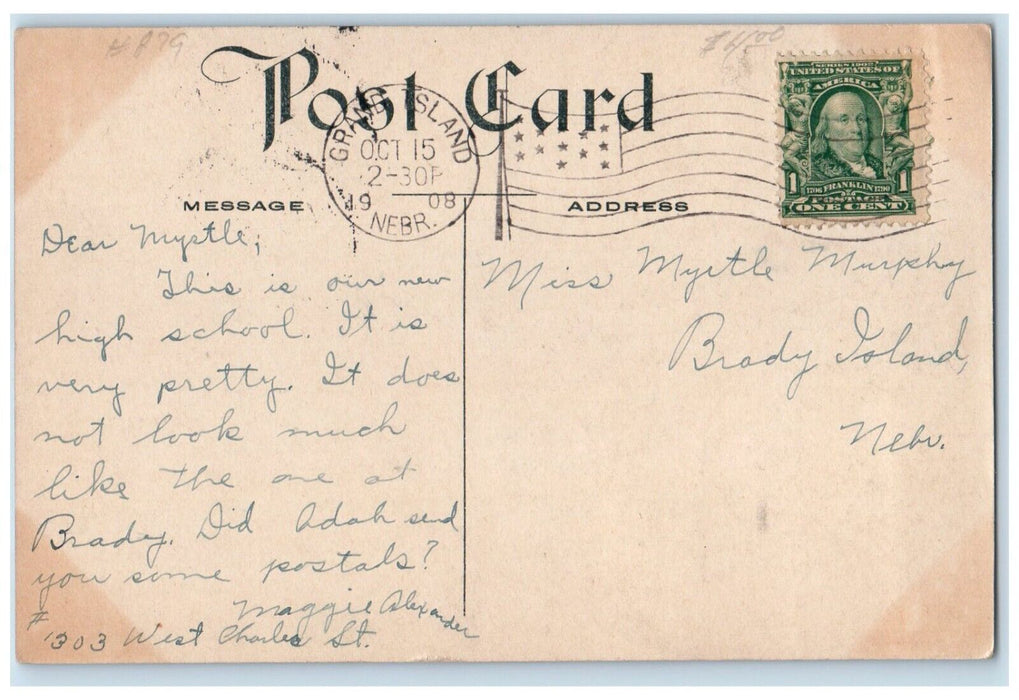 # 879
$6.00
Post Card
SERIES 1902
UNITED STATES OF
AMERICA
1706 FRANKLIN 1790
POSTAGE
1 ONE CENT 1
GRAND ISLAND
OCT 15
2-30P
1908
NEBR.
MESSAGE
ADDRESS
Dear Myrtle;
This is our new
high school. It is
very pretty. It does
not look much
like the one at
Brady. Did Adah send
you some postals?
Maggie Alexander
# 1303 West Charles St.
Miss Myrtle Murphy
Brady Island,
Nebr.